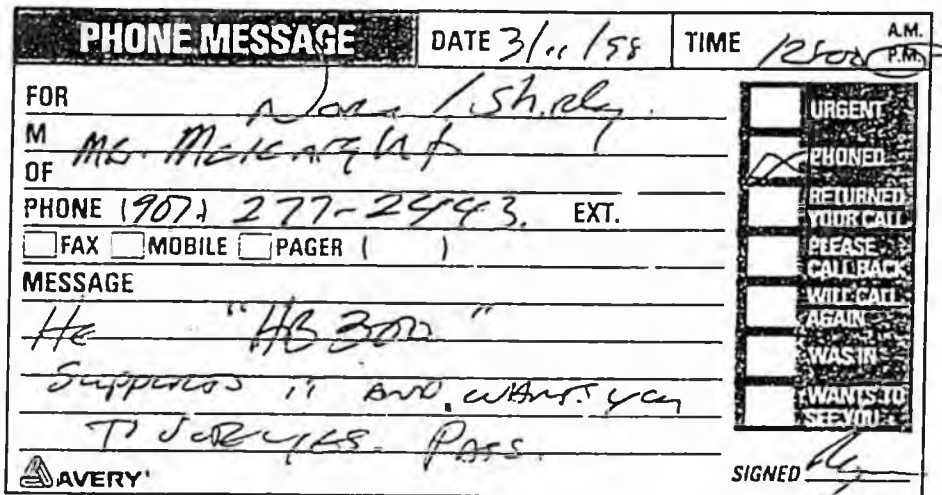 PHONE MESSAGE DATE 3/11/98 TIME A.M.
P.M.
FOR
M Mr.
OF
PHONE (907) 277-2443. EXT.
FAX MOBILE PAGER ( )
MESSAGE
He "HB 300"
Supports it and wants you
Pass.
AVERY
URGENT
PHONED
RETURNED
YOUR CALL
PLEASE
CALL BACK
WILL CALL
AGAIN
WAS IN
WANTS TO
SEE YOU
SIGNED